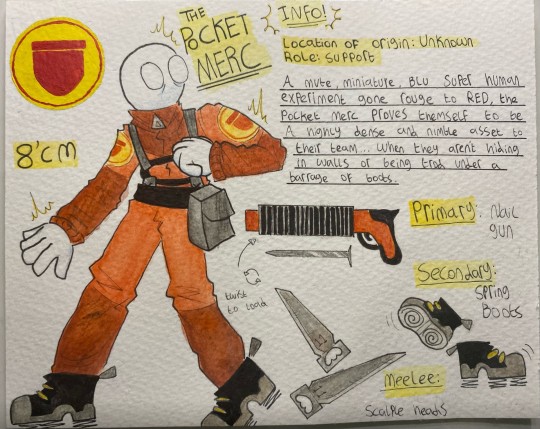 THE
POCKET
MERC
INFO!
Location of origin: Unknown
Role: Support
A mute, miniature, BLU super human
experiment gone rouge to RED, the
Pocket merc proves themself to be
A highly dense and nimble asset to
their team... when they aren't hiding
in walls or being trod under a
barrage of boots.
8'cm
Primary: Nail
gun
twist
to load
Secondary:
Spring
Boots
Meelee:
Scalple heads